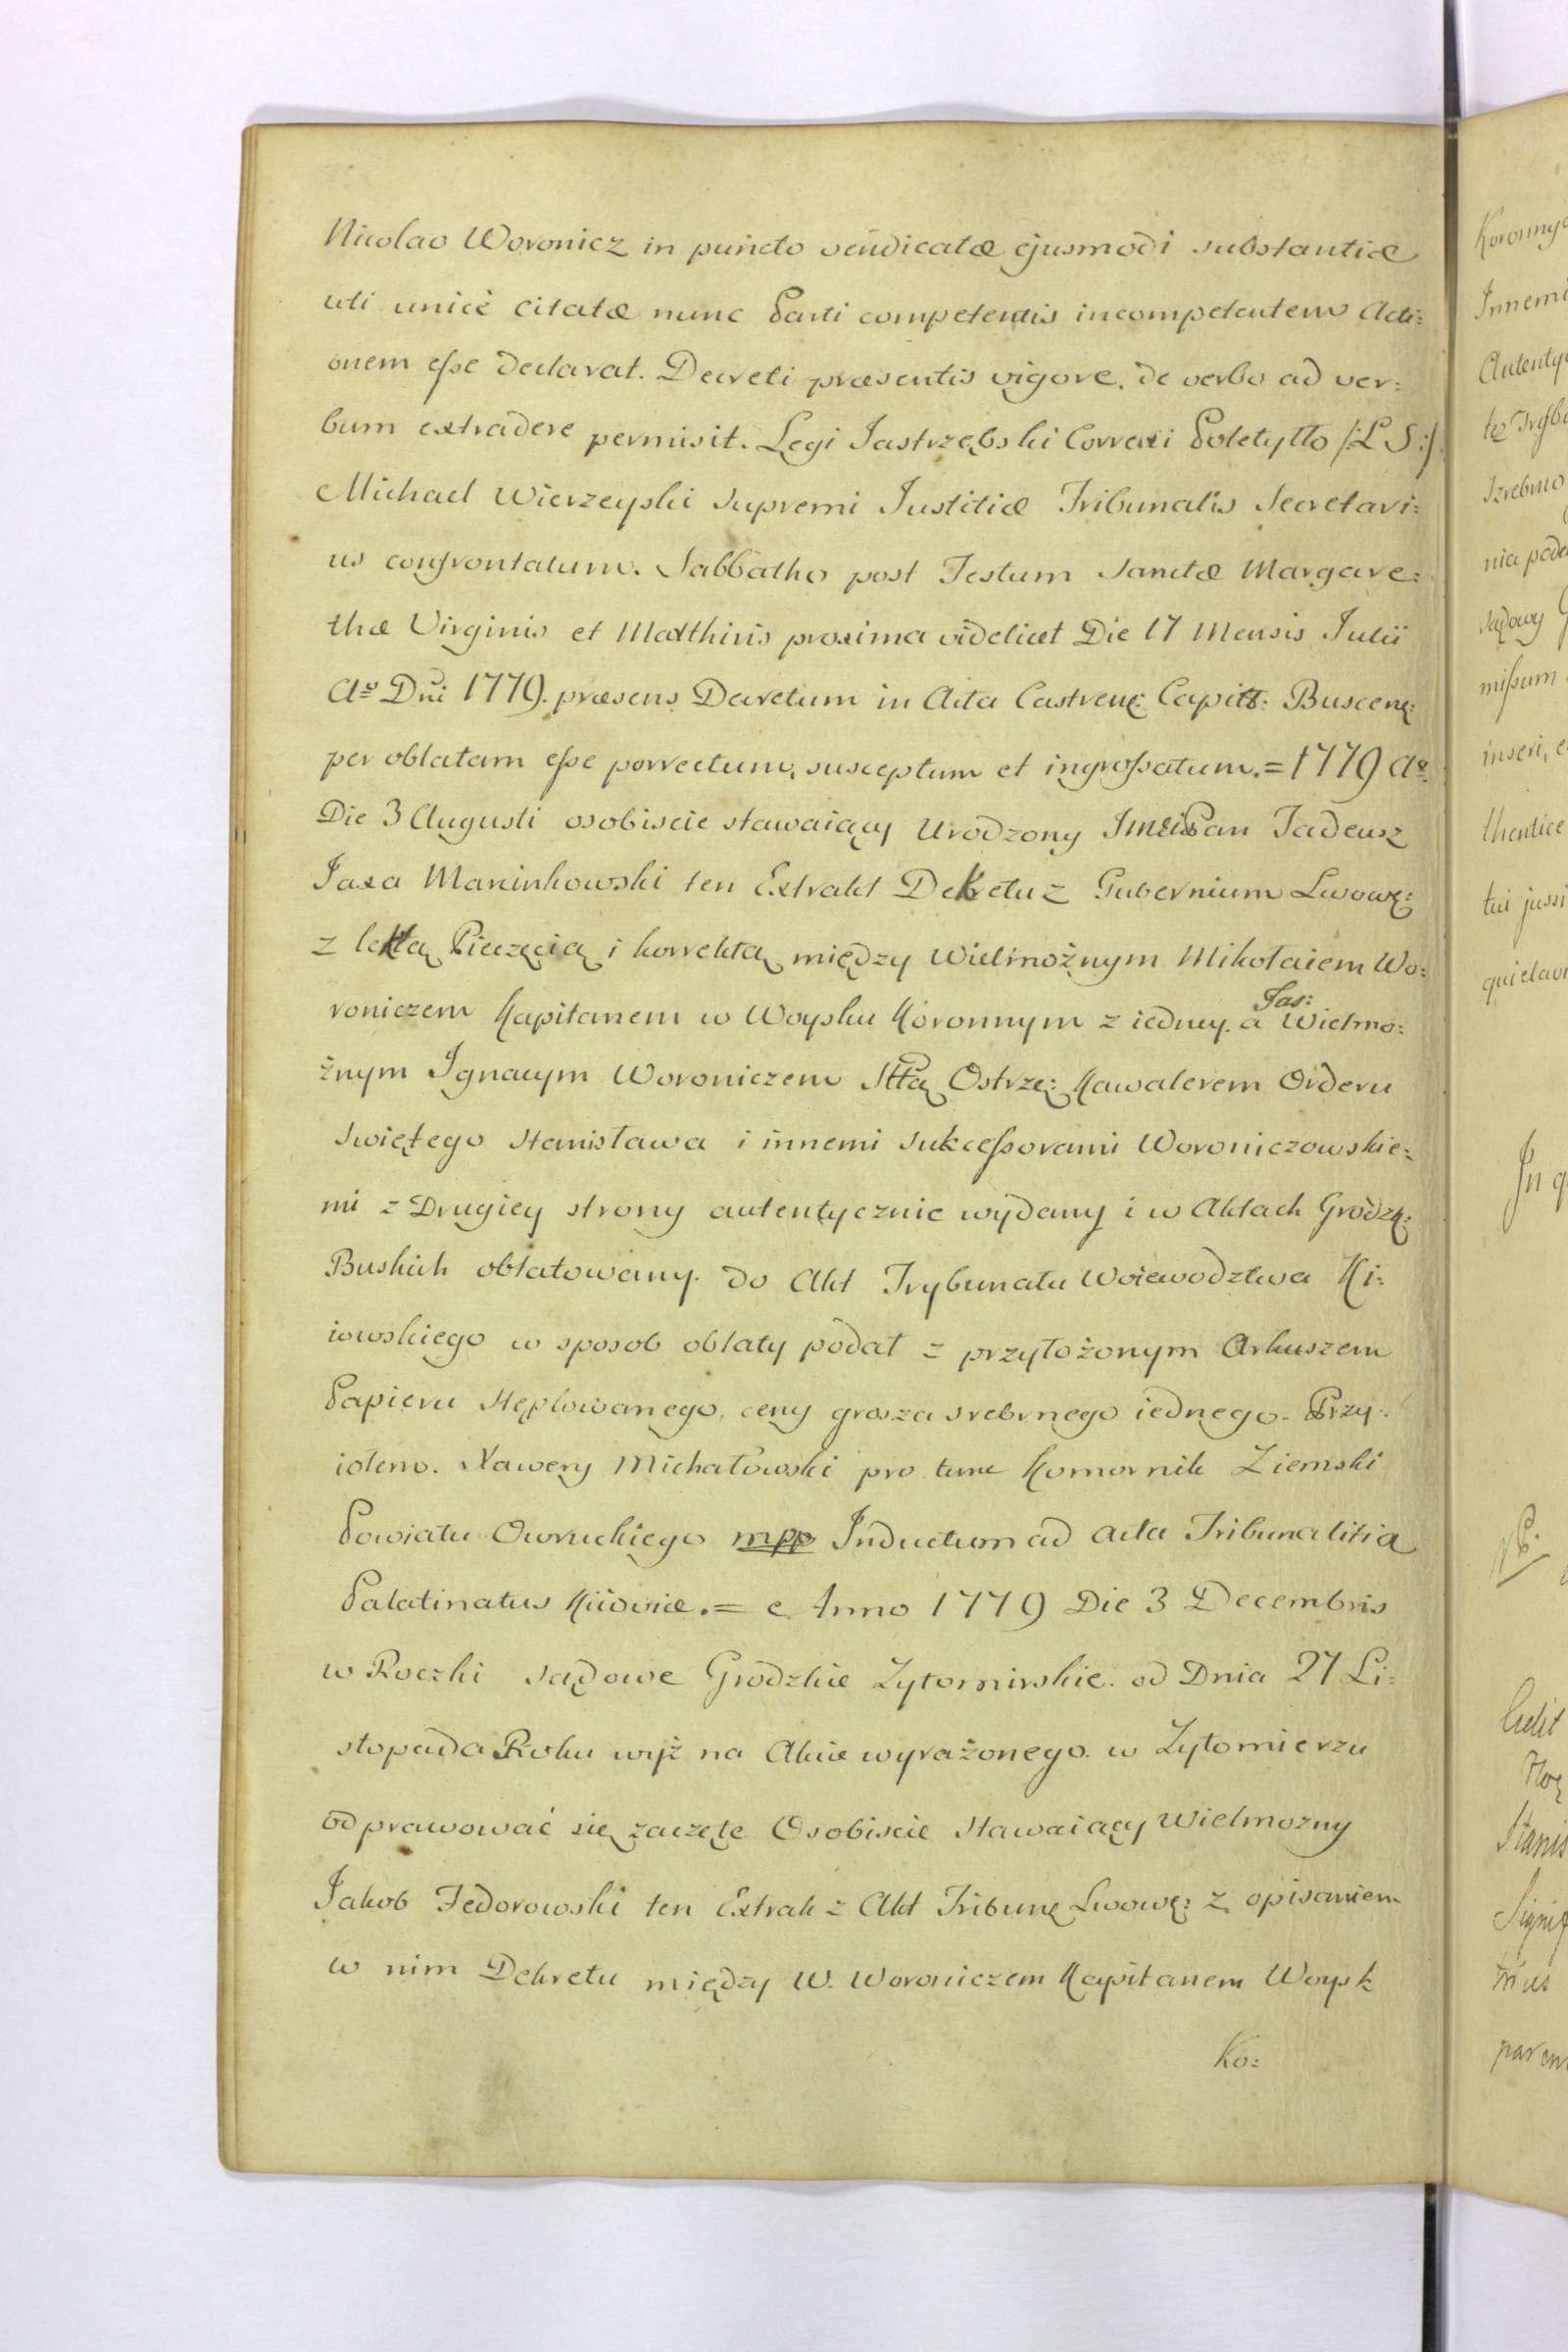 Nicolao Woronicz in puncto vendicatæ ejusmodi substantiæ
uti unicè citatæ nunc Parti competentis incompetentem Acti:
onem eſse declarat. Decreti præsentis vigore, de verbo ad ver:
bum extradere permisit. Legi Jastrzębski Correxi Poletyłło /:L S:/
Michael Wierzeyski supremi Justitiæ Tribunalis Secretari:
us confrontatum. Sabbatho post Festum Sanctæ Margare:
thæ Virginis et Matthiris proxima videlicet Die 17 Mensis Julii
Ao Dni 1779. præsens Decretum in Acta Castrenę: Capitt: Buscenę:
per oblatam eſse porrectum, susceptum et ingroſsatum. = 1779 Ao
Die 3 Augusti osobiscie stawaiący Urodzony Jmći Pan Tadeusz
Jaxa Maninkowski ten Extrakt Dekretu z Gubernium Lwowę:
z lektą Pieczęcią i korrektą między Wielmożnym Mikołaiem Wo:
roniczem Kapitanem w Woysku Koronnym z iedney. a Jas: Wielmo:
żnym Ignacym Woroniczem Sttą Ostrzę: Kawalerem Orderu
Swiętego Stanisława i innemi Sukceſsorami Woroniczowskie:
mi z Drugiey strony autentycznie wydany i w Aktach Grodzę:
Buskich oblatowany. do Akt Trybunału Woiewodztwa Ki:
iowskiego w sposob oblaty podał z przyłożonym Arkuszem
Papieru Stęplowanego, ceny grosza srebrnego iednego. Przy:
iołem. Xawery Michałowski pro tunc Komornik Ziemski
Powiatu Owruckiego mpp Inductum ad acta Tribunalitia
Palatinatus Kiioviæ. = Anno 1779 Die 3 Decembris
w Roczki sądowe Grodzkie Zytomirskie. od Dnia 27 Li:
stopada Roku wyż na Akcie wyrażonego. w Zytomierzu
odprawować się zaczęte Osobiscie stawaiący Wielmozny
Jakob Fedorowski ten Extrak z Akt Tribunę Lwowę: z opisaniem
w nim Dekretu między W. Woroniczem Kapitanem Woysk
Ko:
Koronnyc
Innemi
Autenty
Srebrno
nia poda
sądowy
miſsum
inseri, e
thentice
tui jussi
In q
Stanis
Signif